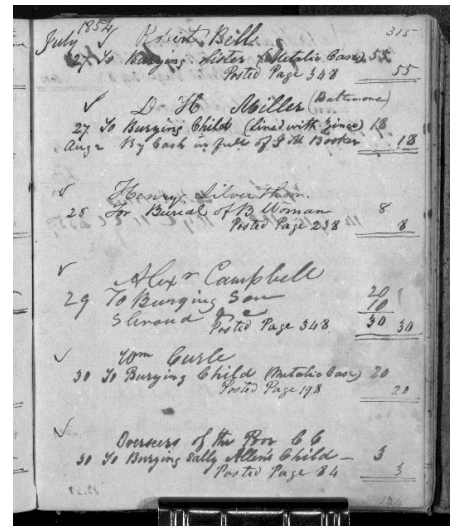 July 1854 315
✓ Robert Bell
27 To Burying Sister (Metalic Case) 55
Posted Page 348 55
✓ D H Miller (Baltimore)
27 To Burying Child (Lined with Zince) 18
Aug 2 By Cash in full of J M Booker 18
✓ Henry Silverthorn
28 For Bureal of B Woman 8
Posted Page 238 8
✓ Alexr Campbell
29 To Burying Son 20
Shroud &c 10
Posted Page 348 30 30
✓ Wm Curle
30 To Burying Child (Metalic Case) 20
Posted Page 198 20
✓ Overseers of the Poor E C
30 To Burying Sally Allen's Child 3
Posted Page 84 3
134